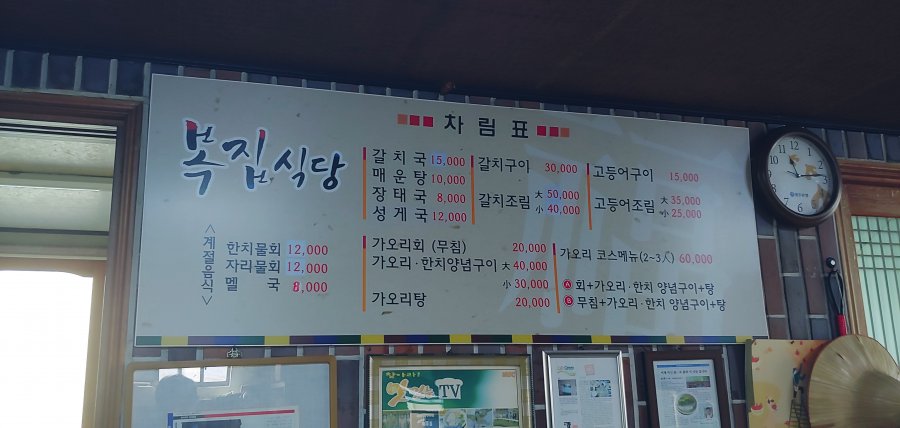 차 림 표
복집식당
갈 치 국 15,000
매 운 탕 10,000
장 태 국 8,000
성 게 국 12,000
갈치구이 30,000
갈치조림 大 50,000
小 40,000
고등어구이 15,000
고등어조림 大 35,000
小 25,000
<계절음식>
한치물회 12,000
자리물회 12,000
멜 국 8,000
가오리회 (무침) 20,000
가오리·한치양념구이 大 40,000
小 30,000
가오리탕 20,000
가오리 코스메뉴(2~3人) 60,000
A 회+가오리·한치 양념구이+탕
B 무침+가오리·한치 양념구이+탕
TV
MBC